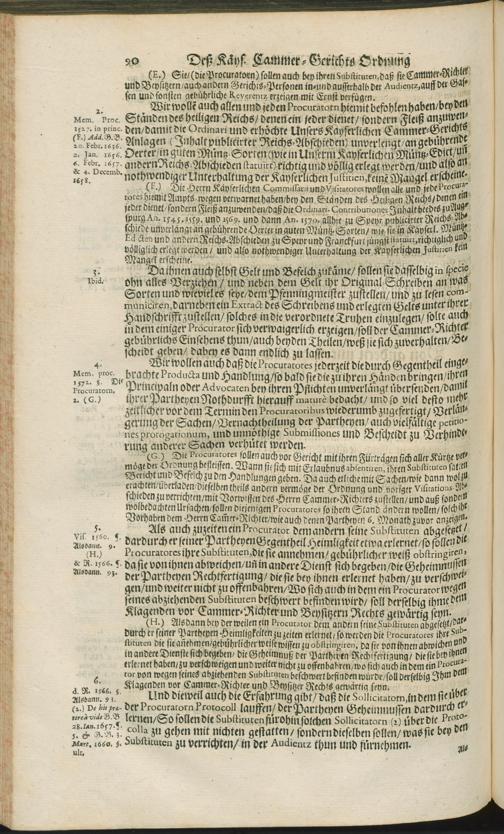 90 Deß Käys. Cammer-Gerichts Ordnung
(E.) Sie/ (die Procuratorn) sollen auch bey ihren Substituten, daß sie Cammer-Richter
und Beysitzern/ auch andern Gerichts-Personen in- und ausserhalb der Audientz, auff der Gas-
sen und sonsten gebührliche Reverentz erzeigen mit Ernst verfügen.
2.
Mem. Proc.
1527. in princ.
(F.) Add. G.B.
20. Febr. 1656.
2. Jan. 1656.
6. Febr. 1657.
& 4. Decemb.
1658.
Wir wollē auch allen und jeden Procuratorn hiemit befohlen haben/ bey den
Ständen des heiligen Reichs/ denen ein jeder dienet/ sondern Fleiß anzuwen-
den/ damit die Ordinari und erhöchte Unsers Kayserlichen Cammer-Gerichts
Anlagen (Inhalt publicirter Reichs-Abschieden) unverlengt/ an gebührende
Oerter/ in guten Müntz-Sorten/ wie in Unserm Kayserlichen Müntz-Edict/ uñ
andern Reichs-Abschieden statuirt/ richtig und völlig erlegt werden/ und also an
nothwendiger Unterhaltung der Kayserlichen Justitien, keine Mangel erscheine.
(F.) Die Herren Käyserlichen Commissarii und Visitatores wollen alle und jede Procura-
tores hiemit Ampts-wegen verwarnet haben/ bey den Ständen des Heiligen Reichs/ denen ein
jeder dienet/ sondern Fleiß anzuwenden/ daß die Ordinari-Contributiones Inhalt beedes zu Aug-
spurg An. 1545. 1559. und 1569. und dann An. 1570. allhie zu Speyr publicirter Reichs-Ab-
schiede unverlängt an gebührende Oerter in guten Müntz-Sorten/ wie sie in Käyserl. Müntz-
Edicten und andern Reichs-Abschieden zu Speyr und Franckfurt jüngst statuirt, richtiglich und
völliglich erlegt werden/ und also nothwendiger Unterhaltung der Kayserlichen Justitien kein
Mangel erscheine.
3.
Ibid.
Da ihnen auch selbst Gelt und Befelch zukäme/ sollen sie dasselbig in specie
ohn alles Verziehen/ und neben dem Gelt ihr Original-Schreiben an was
Sorten und wieviel es sey, dem Pfenningmeister zustellen/ und zu lesen com-
municiren, darneben ein Extract des Schreibens und erlegten Gelts unter ihrer
Handschrifft zustellen/ solches in die verordnete Truhen einzulegen/ solte auch
in dem einiger Procurator sich verwaigerlich erzeigen/ soll der Cammer-Richter
gebührlichs Einsehens thun/ auch beyden Theilen/ weß sie sich zuverhalten/ Be-
scheidt geben/ dabey es dann endlich zu lassen.
4.
Mem. proc.
1572. §. Die
Procuratorn,
2. (G.)
Wir wollen auch daß die Procuratores jederzeit die durch Gegentheil einge-
brachte Producta und Handlung/ so bald sie die zu ihren Händen bringen/ ihren
Principaln oder Advocaten bey ihren Pflichten unverlängt übersenden/ damit
ihrer Partheyen Notthdurfft hierauff maturè bedacht/ und so viel desto mehr
zeitlicher vor dem Termin den Procuratoribus wiederumb zugefertigt/ Verlän-
gerung der Sachen/ Vernachtheilung der Partheyen/ auch vielfältige petitio-
nes prorogationum, und unnöthige Submissiones und Bescheidt zu Verhinde-
rung anderer Sachen verhütet werden.
(G.) Die Procuratores sollen auch vor Gericht mit ihren Fürträgen sich aller Kürtze ver-
möge der Ordnung befleissen. Wann sie sich mit Erlaubnus absentiren, ihren Substituten satten
Bericht und Befelch zu den Handlungen geben. Da auch etliche mit Sachen/ wie dann wol zu
erachten/ überladen/ dieselben theils andern vermöge der Ordnung und voriger Visitations-Ab-
schieden zu verrichten/ mit Vorwissen des Herren Cammer-Richters zustellen/ und auß sondern
wolbedachten Ursachen/ sollen diejenigen Procuratores so ihren Stand ändern wollen/ solch ihr
Vorhaben dem Herrn Cammer-Richter/ wie auch denen Partheyen 6. Monath zuvor anzeigen.
5.
Vis. 1560. §.
Alsdann. 9.
(H.)
& R. 1566. §.
Alsdann. 93.
Als auch zuzeiten ein Procurator dem andern seine Substituten abgesetzt/
dardurch er seiner Partheyen Gegentheil Heimligkeit etwa erlernet/ so sollen die
Procuratores ihre Substituten, die sie annehmen/ gebührlicher weiß obstringiren,
da sie von ihnen abweichen/ uñ in andere Dienst sich begeben/ die Geheimnussen
der Partheyen Rechtfertigung/ die sie bey ihnen erlernet haben/ zu verschwei-
gen/ und weiter nicht zu offenbahren/ Wo sich auch in dem ein Procurator wegen
seines abziehenden Substituten beschwert befinden wird/ soll derselbig ihme dem
Klagenden vor Cammer-Richter und Beysitzern Rechts gewärtig seyn.
(H.) Als dann bey der weilen ein Procutator dem andern seine Substituten abgesetzt/ dar-
durch er seiner Partheyen-Heimligkeiten zu zeiten erlernet/ so werden die Procuratores ihre Sub-
stituten die sie annehmen/ gebührlicher weise wissen zu obstringiren, da sie von ihnen abweichen und
in andere Dienst sich begeben/ die Geheimnuß der Partheyen Rechtfertigung/ die sie bey ihnen
erlernet haben/ zu verschweigen und weiter nicht zu offenbahren/ wo sich auch in dem ein Procura-
tor von wegen seines abziehenden Substituten beschwert befinden würde/ soll derselbig Ihm dem
Klagenden vor Cammer-Richter und Beysitzer Rechts gewärtig seyn.
6.
d. R. 1566. §.
Alsdann. 93.
(2.) De his prae-
tereà vide G.B.
28. Jan. 1657. §.
5. & G.B. 3.
Mart. 1660. §.
ult.
Und dieweil auch die Erfahrung gibt/ daß die Sollicitatorn, in dem sie über
der Procuratorn Protocoll lauffen/ der Partheyen Geheimnussen dardurch er-
lernen/ So sollen die Substituten fürohin solchen Sollicitatorn (2) über die Proto-
colla zu gehen mit nichten gestatten/ sondern dieselben sollen/ was sie bey den
Substituten zu verrichten/ in der Audientz thun und fürnehmen.
Als